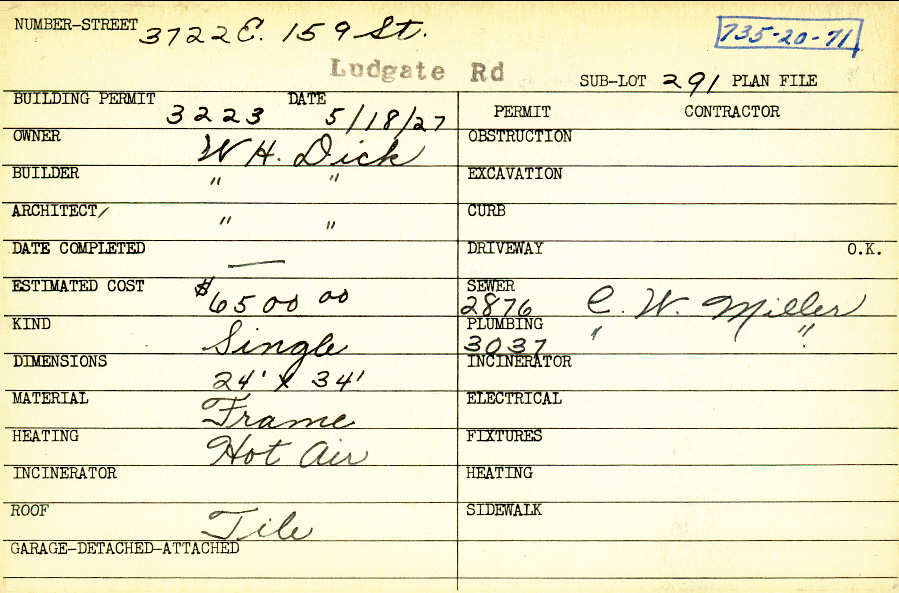 NUMBER-STREET 3722 E. 159 St. 735-20-71
Ludgate Rd
SUB-LOT 291 PLAN FILE
BUILDING PERMIT 3223 DATE 5/18/27
OWNER W. H. Dick
BUILDER " "
ARCHITECT/ " "
DATE COMPLETED —
ESTIMATED COST $6500 00
KIND Single
DIMENSIONS 24' x 34'
MATERIAL Frame
HEATING Hot Air
INCINERATOR
ROOF Tile
GARAGE-DETACHED-ATTACHED
PERMIT CONTRACTOR
OBSTRUCTION
EXCAVATION
CURB
DRIVEWAY O.K.
SEWER
2876 C. W. Miller
PLUMBING " "
3037
INCINERATOR
ELECTRICAL
FIXTURES
HEATING
SIDEWALK